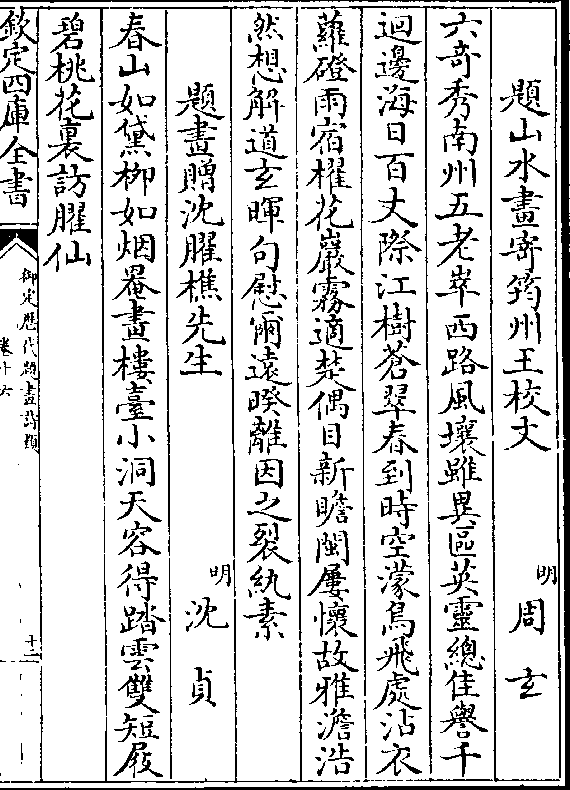 題山水畫寄筠州王校丈 明 周玄
六奇秀南州五老崒西路風壤雖異區英靈總佳譽千
迴邊海日百丈際江樹蒼翠春到時空濛鳥飛處沾衣
蘿磴雨宿櫂花巖霧適楚偶目新瞻閩屢懷故雅澹浩
然想解道玄暉句慰爾遠暌離因之裂紈素
題畫贈沈臞樵先生 明 沈貞
春山如黛柳如烟罨畫樓臺小洞天容得踏雲雙短屐
碧桃花裏訪臞仙
欽定四庫全書
御定歷代題畫詩類
卷十六
十二